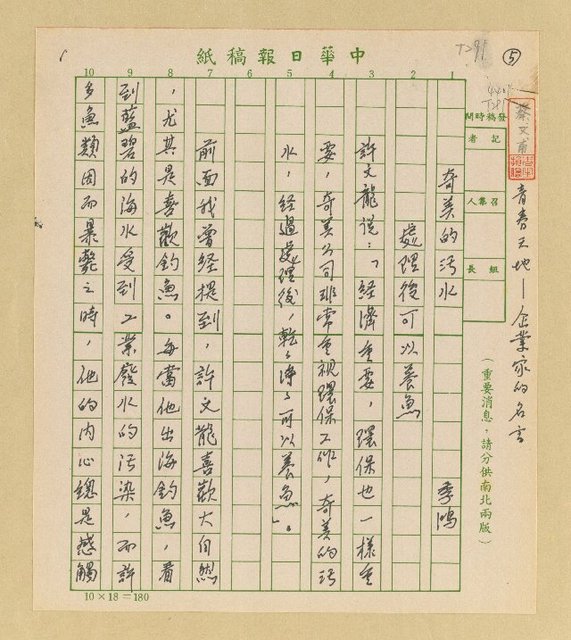 中華日報稿紙
⑤
T291
青春天地—企業家的名言
發稿時間
記者
召集人
組長
(重要消息,請分供南北兩版)
1 2 3 4 5 6 7 8 9 10
奇美的污水
季鴻
處理後可以養魚
許文龍說:「經濟重要,環保也一樣重
要,奇美公司非常重視環保工作,奇美的污
水,經過處理後,乾乾淨淨可以養魚。」
前面我曾經提到,許文龍喜歡大自然
,尤其是喜歡釣魚。每當他出海釣魚,看
到藍碧的海水受到工業廢水的污染,而許
多魚類因而暴斃之時,他的內心總是感觸
10×18=180